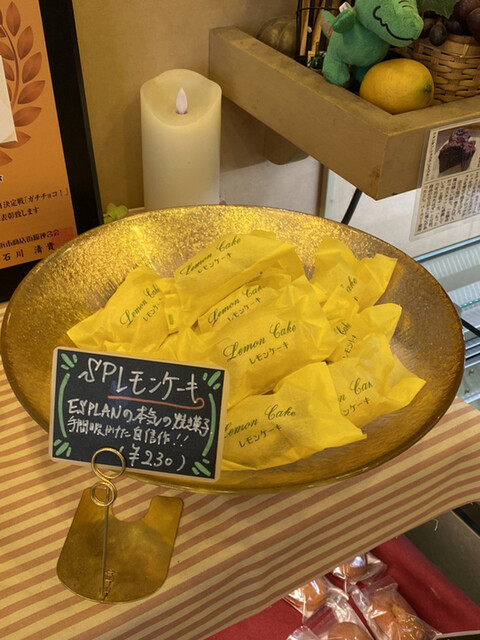 決定戦「ガチチョコ!」
表彰致します
石川 清貴
Lemon Cake
レモンケーキ
Lemon Cake
レモンケーキ
Lemon Cake
レモンケーキ
Lemon Cake
レモンケーキ
Lemon Cake
レモンケーキ
Lemon Cake
レモンケーキ
SPレモンケーキ
ESPLANの本気の焼菓子
手間暇かけた自信作!!
¥230)